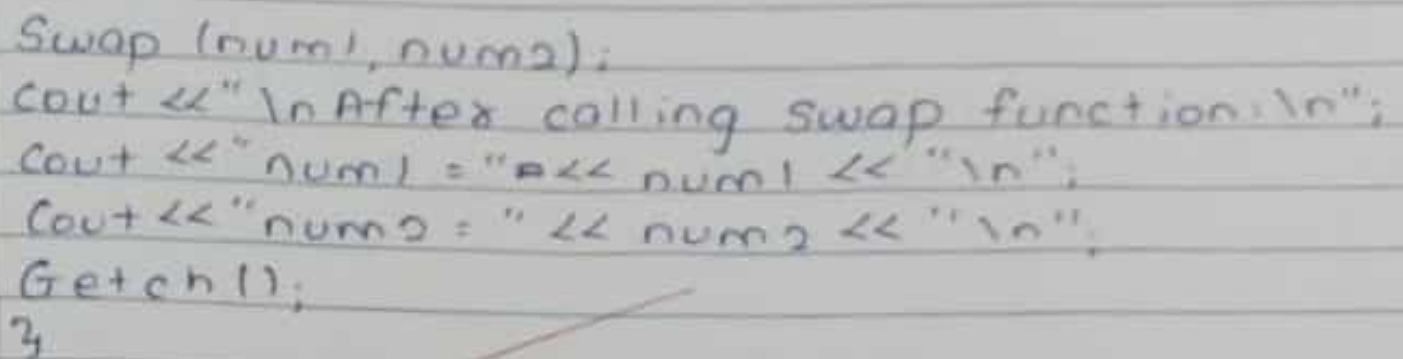 Swap (num1, num2);
cout <<"\n After calling swap function:\n";
cout <<"num1 = "<< num1 << "\n";
cout <<"num2 = " << num2 << "\n";
Getch();
}